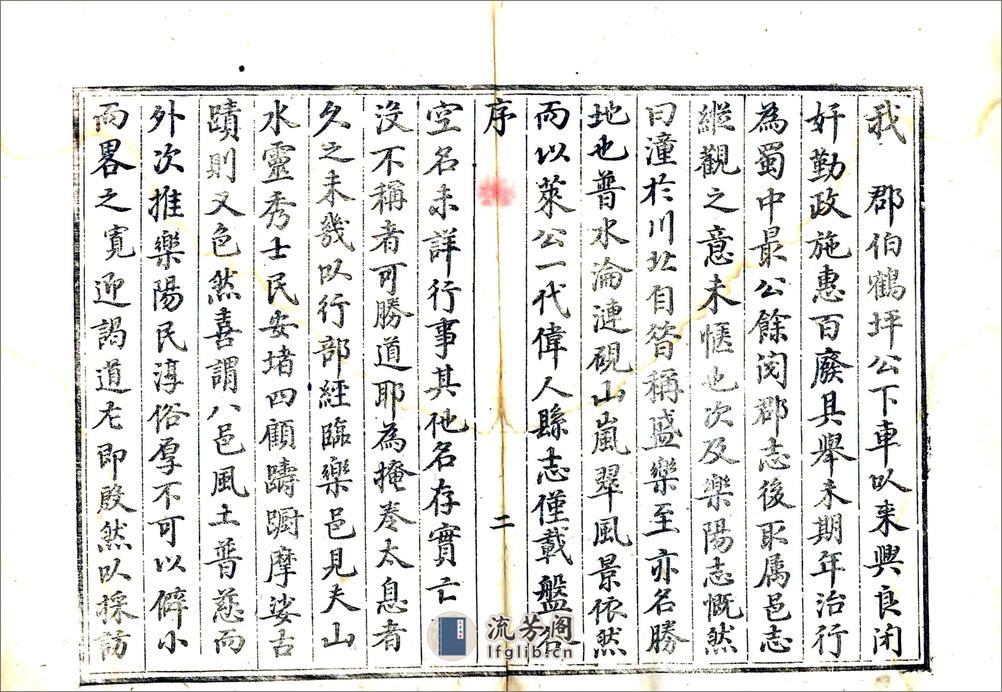 我　郡伯鶴坪公下車以来興良闭
奸勤政施惠百廢具舉未期年治行
為蜀中最公餘阅郡志後取属邑志
縱觀之意未愜也次及樂陽志慨然
曰潼於川北自昔稱盛樂至亦名勝
地也普水淪漣硯山嵐翠風景依然
而以萊公一代偉人縣志僅載盤
序
二
空名未詳行事其他名存實亡
没不稱者可勝道耶為掩卷太息者
久之未幾以行部經臨樂邑見夫山
水靈秀士民安堵四顧躊躕摩娑古
蹟則又色然喜謂八邑風土普慈而
外次推樂陽民淳俗厚不可以僻小
而畧之寛迎謁道左即殷然以採訪
流芳阁
lfglib.cn